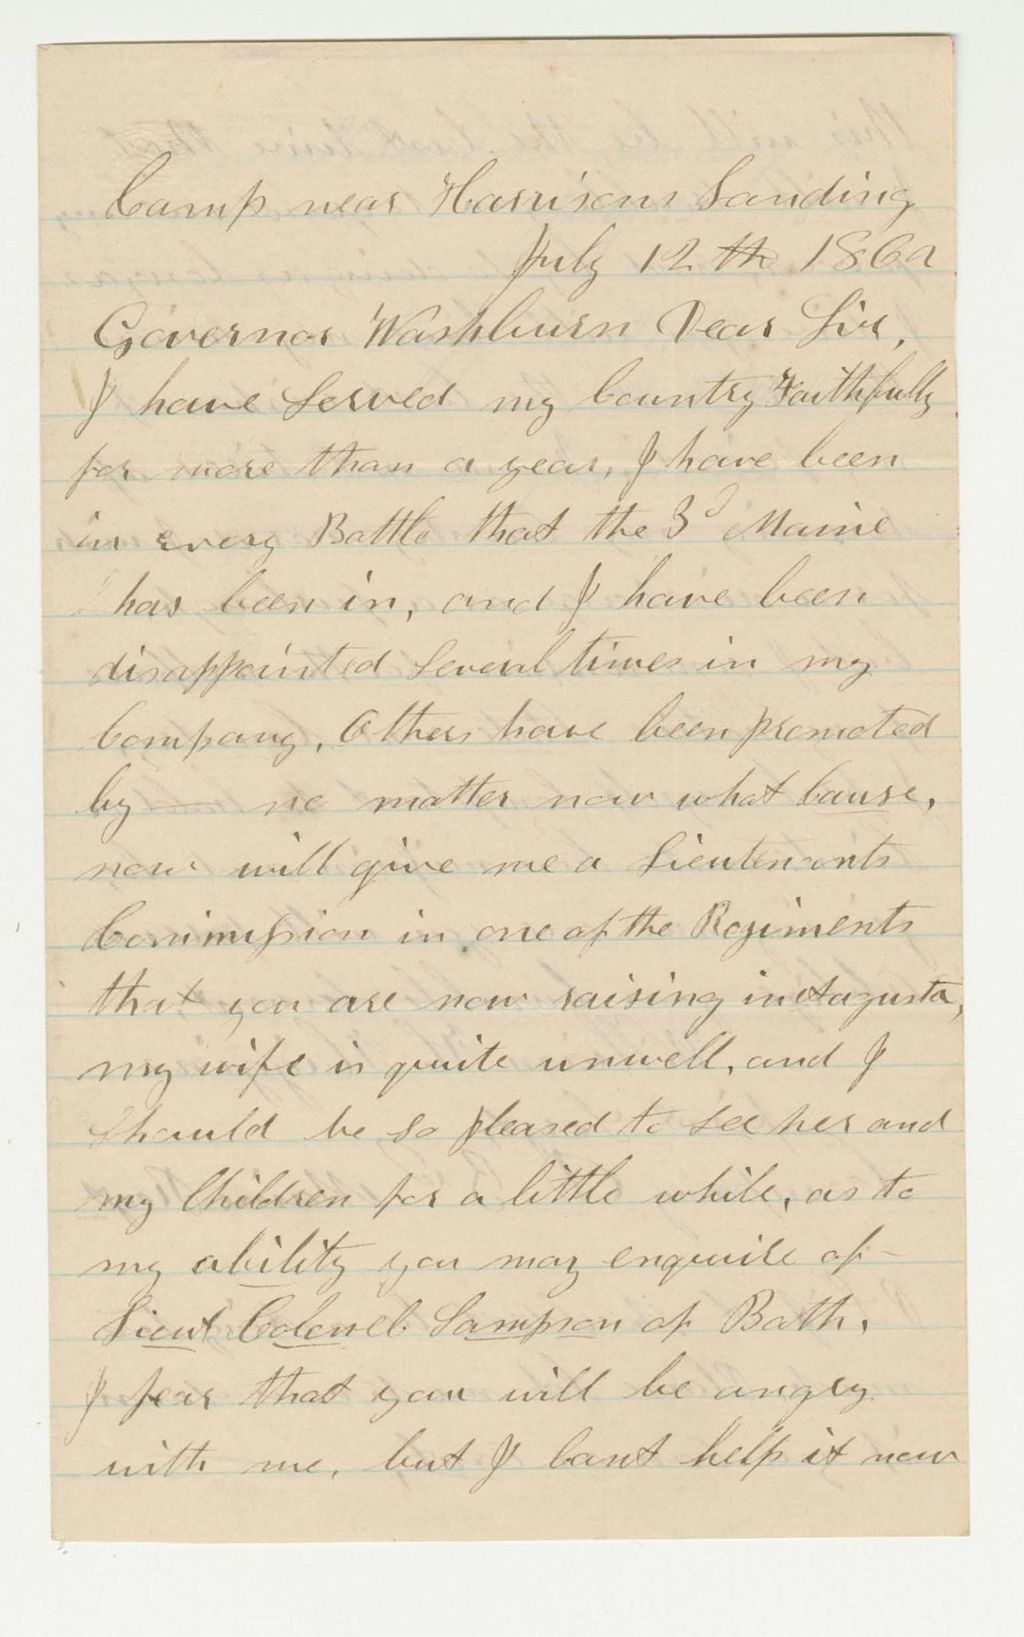 Camp near Harrisons Landing
July 12th 1862
Governor Washburn Dear Sir,
I have Served my Country Faithfully
for more than a year, I have been
in every Battle that the 3d Maine
has been in, and I have been
disappointed Several times in my
Company, Others have been promoted
by — no matter now what Cause,
now will give me a Lieutenants
Commission in one of the Regiments
that you are now raising in Augusta,
my wife is quite unwell, and I
Should be so pleased to see her and
my Children for a little while, as to
my ability you may enquire of
Lieut Colonel Sampson of Bath,
I fear that you will be angry
with me, but I Cant help it now